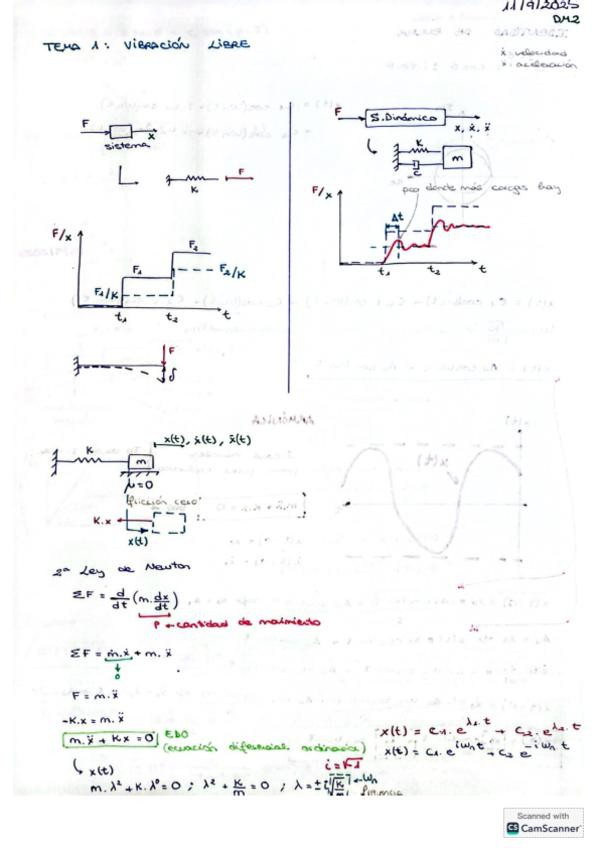 11/9/2025
DM2
TEMA 1: VIBRACIÓN LIBRE
ẋ: velocidad
ẍ: aceleración
F
x
sistema
F
K
F/x
F₁
F₂
F₁/K
F₂/K
t₁
t₂
t
F
δ
F
S. Dinámico
x, ẋ, ẍ
K
m
c
F/x
pico donde más cargas hay
Δt
t₁
t₂
t
K
m
x(t), ẋ(t), ẍ(t)
μ=0
fricción cero
K.x
x(t)
2ª Ley de Newton
ΣF = d/dt (m. dx/dt)
P ← cantidad de movimiento
ΣF = ṁ.ẋ + m.ẍ
0
F = m.ẍ
-K.x = m.ẍ
m.ẍ + Kx = 0
EDO
(ecuación diferencial ordinaria)
x(t) = C₁.e^λ₁.t + C₂.e^λ₂.t
x(t) = C₁.e^iωn t + C₂ e^-iωn t
x(t)
i=√-1
m.λ² + K.λ⁰ = 0 ; λ² + K/m = 0 ; λ = ± i √K/m ← ωn
Scanned with
CS CamScanner